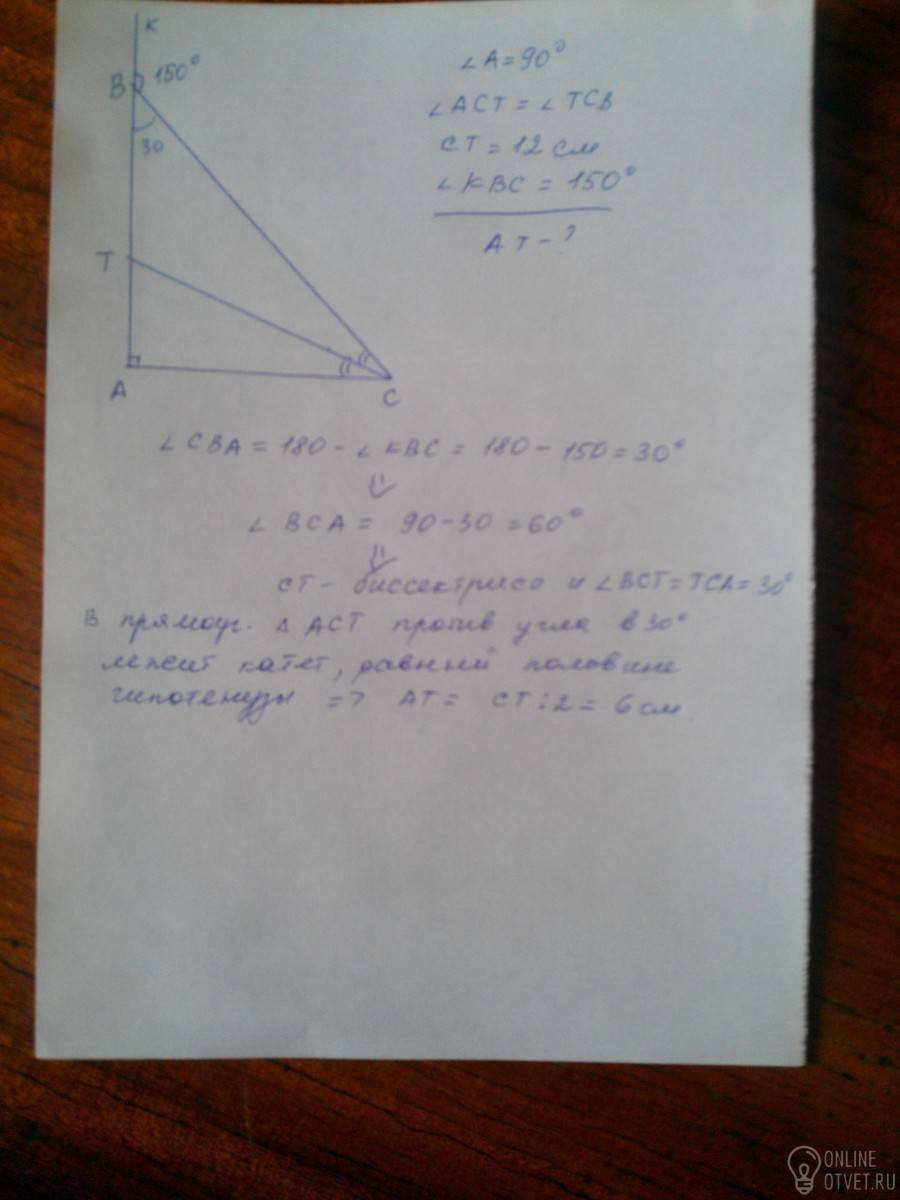 K
B 150°
30
T
A
C
∠A = 90°
∠ACT = ∠TCB
CT = 12 см
∠KBC = 150°
AT - ?
∠CBA = 180 - ∠KBC = 180 - 150 = 30°
⇓
∠BCA = 90 - 30 = 60°
⇓
CT - биссектриса и ∠BCT = TCA = 30°
В прямоуг. Δ ACT против угла в 30°
лежит катет, равный половине
гипотенузы => AT = CT : 2 = 6 см.
ONLINE
OTVET.RU